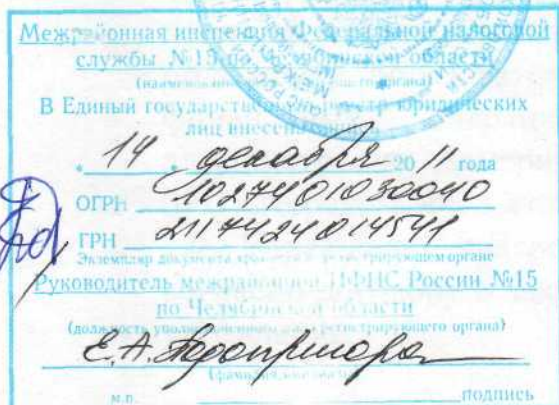 Межрайонная инспекция Федеральной налоговой
службы №15 по Челябинской области
В Единый государственный реестр юридических
лиц внесена запись
« 14 » декабря 20 11 года
ОГРН 1027401030040
ГРН 2117424014541
Экземпляр документа хранится в регистрирующем органе
Руководитель межрайонной ИФНС России №15
по Челябинской области
(должность уполномоченного лица регистрирующего органа)
Е.А.
м.п. подпись